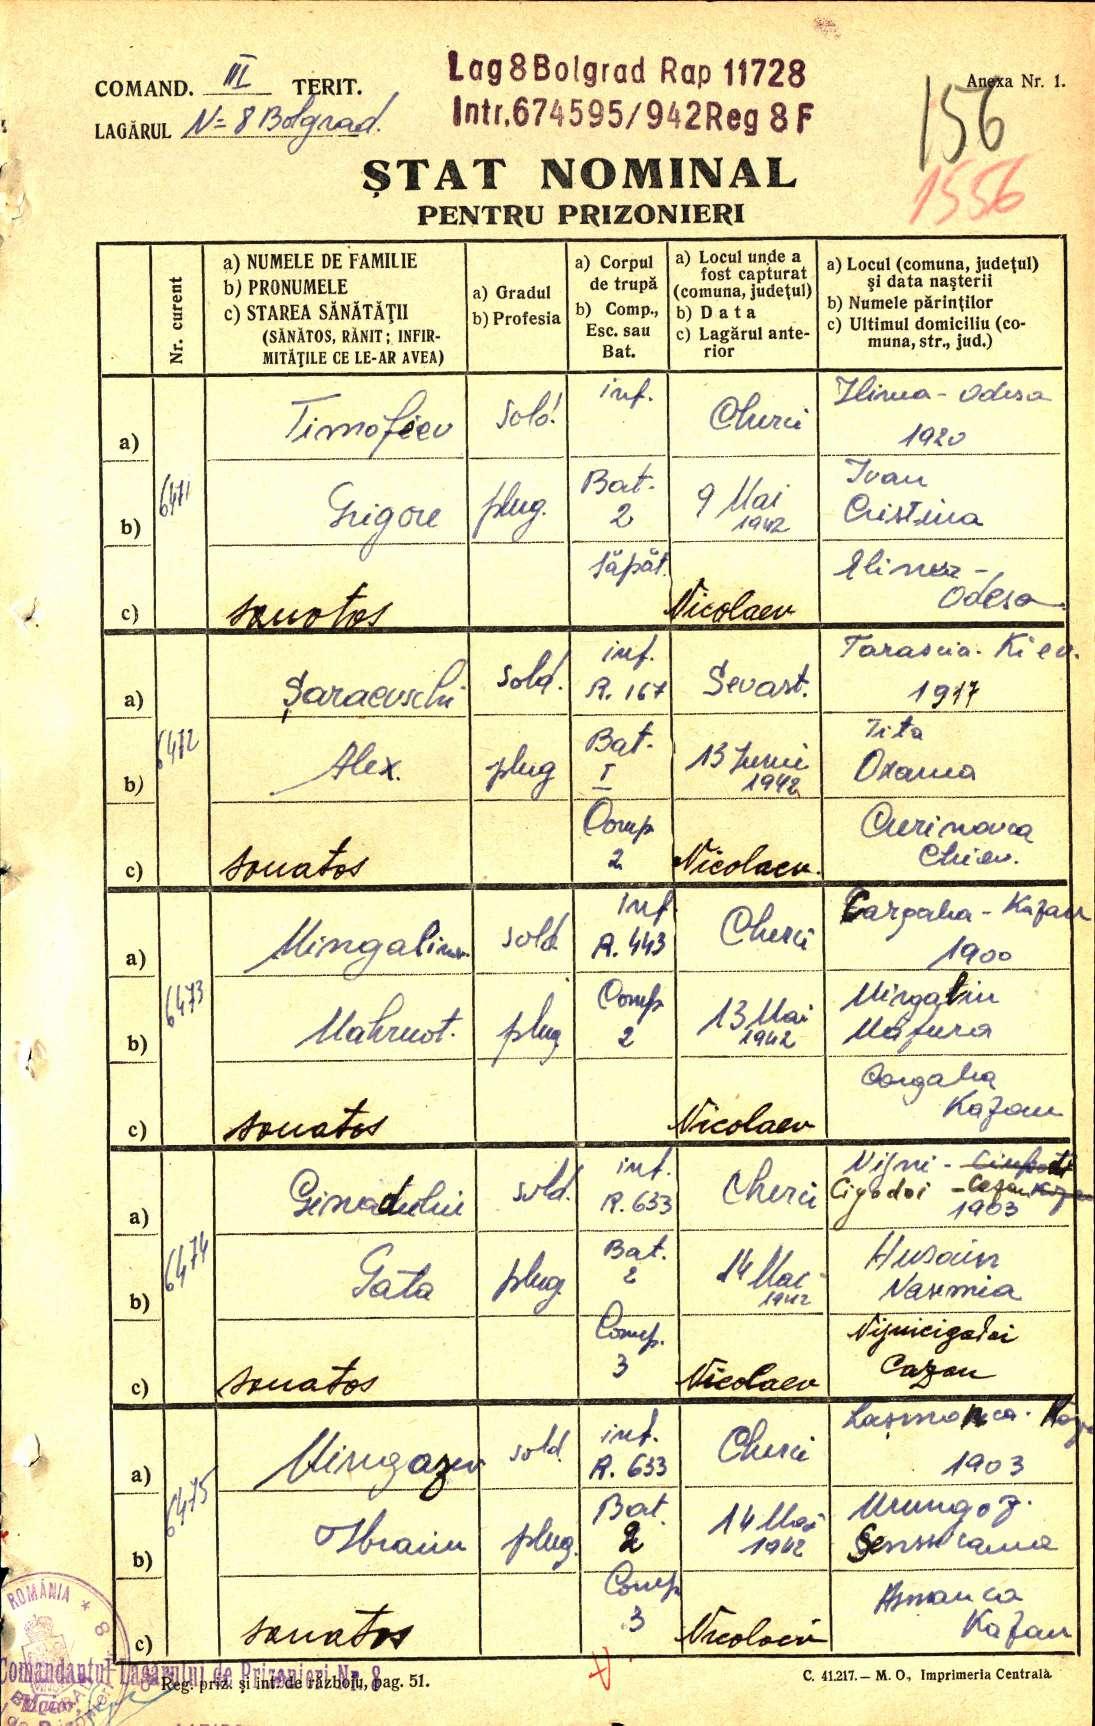 Lag 8 Bolgrad Rap 11728
Intr. 674595/942 Reg 8 F
COMAND. III TERIT.
Anexa Nr. 1.
LAGĂRUL N= 8 Bolgrad.
156
1556
ȘTAT NOMINAL
PENTRU PRIZONIERI
Nr. curent
a) NUMELE DE FAMILIE
b) PRONUMELE
c) STAREA SĂNĂTĂȚII
(SĂNĂTOS, RĂNIT; INFIR-
MITĂȚILE CE LE-AR AVEA)
a) Gradul
b) Profesia
a) Corpul
de trupă
b) Comp.,
Esc. sau
Bat.
a) Locul unde a
fost capturat
(comuna, județul)
b) Data
c) Lagărul ante-
rior
a) Locul (comuna, județul)
și data nașterii
b) Numele părinților
c) Ultimul domiciliu (co-
muna, str., jud.)
6471
a) Timofeev sold. inf. Cherci Ilinca - Odesa
1920
b) Grigore plug. Bat. 2 9 Mai 1942 Ivan
Cristina
c) sanatos săpăt. Nicolaev
Odesa
6472
a) Șaraevschi sold. inf. R. 167 Sevast. Tarascia - Kiev.
1917
b) Alex. plug Bat. I 13 Iunie 1942 Tita
Oxana
c) sanatos Comp 2 Nicolaev.
Chiev.
6473
a) Mingalinov sold. Inf. R. 443 Cherci Cargalia - Kazan
1900
b) Mahmot. plug Comp 2 13 Mai 1942 Mingalin
Mafura
c) sanatos Nicolaev Cargalia
Kazan
6474
a) sold. inf. R. 633 Cherci Nijni -
Cigodoi - Cazan
1903
b) Gata plug. Bat. 2 14 Mai 1942 Husain
Nasmia
c) sanatos Comp. 3 Nicolaev Nijnicigalei
Cazan
6475
a) Mingazev sold inf. R. 633 Cherci
1903
b) Ibraim plug. Bat. 2 14 Mai 1942
c) sanatos Comp 3 Nicolaev Asmanca
Kazan
ROMÂNIA * 8
Comandantul Lagărului de Prizonieri Nr. 8
Maior,
Reg. priz. și int. de războiu, pag. 51.
C. 41.217. — M. O., Imprimeria Centrală.